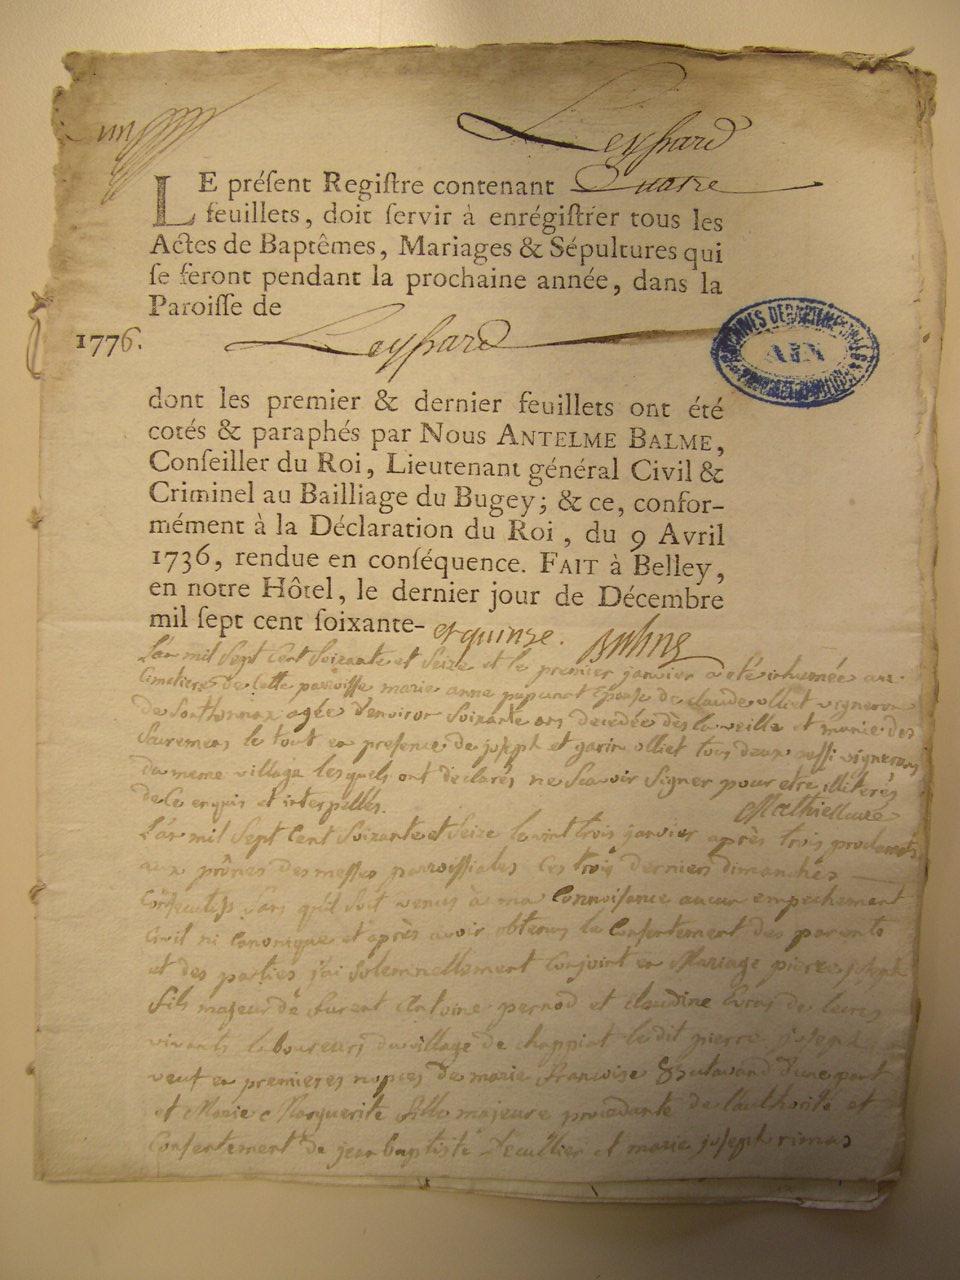 un
Leyssard
LE préſent Regiſtre contenant Quatre
feuillets, doit ſervir à enrégiſtrer tous les
Actes de Baptêmes, Mariages & Sépultures qui
ſe feront pendant la prochaine année, dans la
Paroiſſe de
1776. Leyssard
ARCHIVES DEPARTEMENTALES
AIN
dont les premier & dernier feuillets ont été
cotés & paraphés par Nous ANTELME BALME,
Conſeiller du Roi, Lieutenant général Civil &
Criminel au Bailliage du Bugey; & ce, confor-
mément à la Déclaration du Roi, du 9 Avril
1736, rendue en conſéquence. FAIT à Belley,
en notre Hôtel, le dernier jour de Décembre
mil ſept cent ſoixante- et quinze. Balme
L'an mil Sept Cent Soixante et Seize et le premier janvier a été inhumée au
Cimetiere de Cette parroisse marie anne epouse de claude olliet vigneron
de Sonthonnax agée d'environ Soixante ans decedée dès la veille et munie des
Sacremens le tout en presence de joseph et garin olliet tous deux aussi vignerons
du meme village lesquels ont declarés ne Scavoir Signer pour etre illiterés
de Ce enquis et interpellés. Mathieu curé
L'an mil Sept Cent Soixante et Seize le vint trois janvier après trois proclamats
aux prônes des messes parroissiales Les trois derniers dimanches
Consecutifs Sans qu'il Soit venus à ma Connoisance aucun empechement
Civil ni Canonique et après avoir obtenus le Consentement des parents
et des parties j'ai Solemnellement Conjoint en Mariage pierre joseph
fils majeur de Laurent Antoine pernod et Claudine de leurs
vivants laboureurs du village de chappiat le dit pierre joseph
veuf en premieres nopces de marie francoise d'une part
et Marie Marguerite fille majeure procedante de l'authorité et
Consentement de jean baptiste et marie joseph